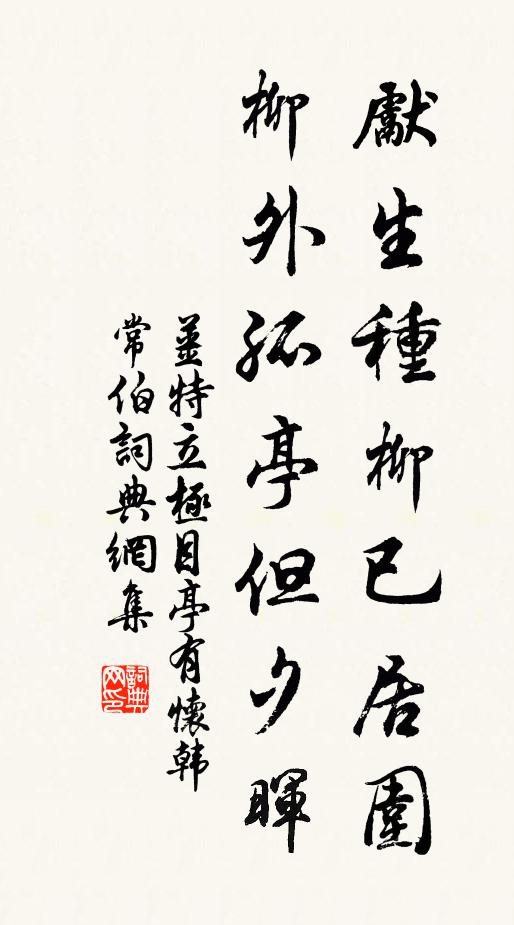 獻生種柳已居圍
柳外孤亭但夕暉
薑特立極目亭有懷韩
常伯詞典網集
詞典
网印